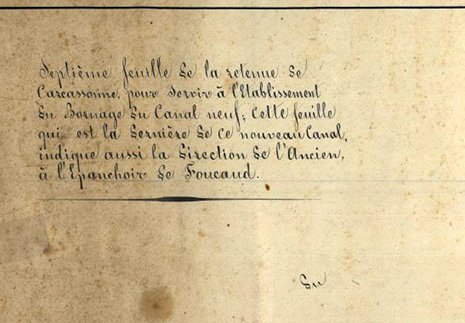 Septième feuille de la retenue de
Carcassonne, pour servir à l'Etablissement
du Bornage du Canal neuf; Cette feuille
qui est la dernière de ce nouveau Canal,
indique aussi la direction de l'Ancien,
à l'Epanchoir de Foucaud.
Du